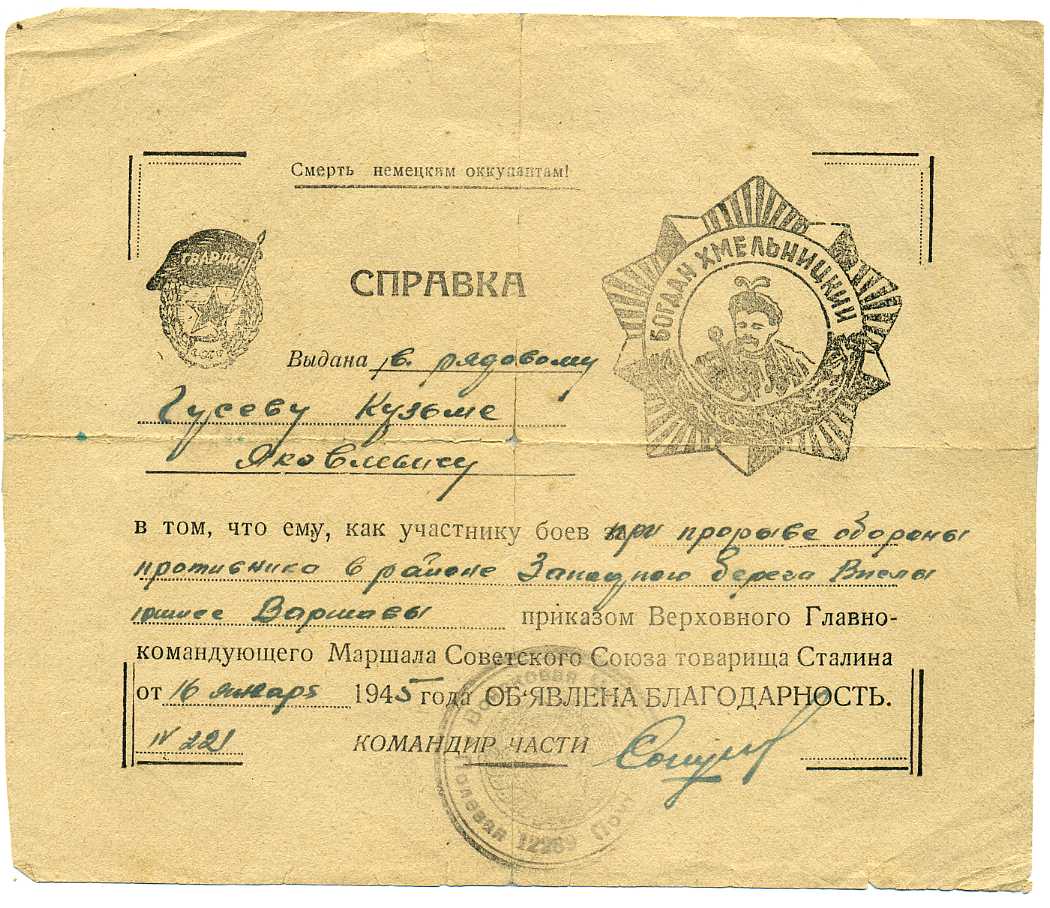 Смерть немецким оккупантам!
ГВАРДИЯ
СПРАВКА
БОГДАН ХМЕЛЬНИЦКИЙ
Выдана гв. рядовому
Гусеву Кузьме
Яковлевичу
в том, что ему, как участнику боев за при прорыве обороны
противника в районе Западного берега Вислы
южнее Варшавы приказом Верховного Главно-
командующего Маршала Советского Союза товарища Сталина
от 16 января 1945 года ОБ'ЯВЛЕНА БЛАГОДАРНОСТЬ.
N 221 КОМАНДИР ЧАСТИ
Полевая 12269